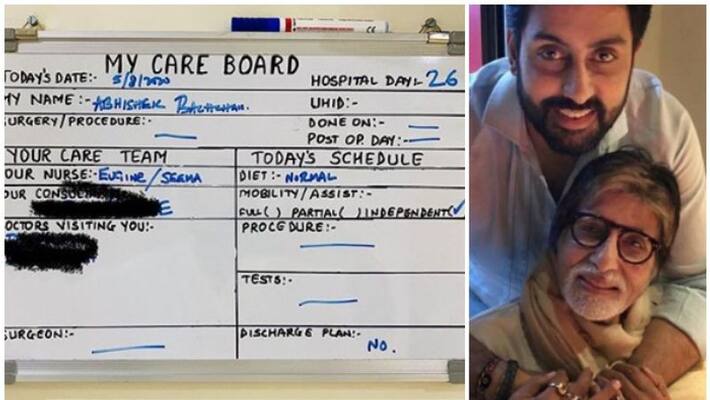 MY CARE BOARD
TODAY'S DATE:- 5/8/2020
HOSPITAL DAY:- 26
MY NAME:- ABHISHEK BACHCHAN.
UHID:-
SURGERY/PROCEDURE:-
DONE ON:-
POST OP. DAY:-
YOUR CARE TEAM
TODAY'S SCHEDULE
YOUR NURSE:- EUGINE/SEEMA
DIET:- NORMAL
MOBILITY/ASSIST:-
FULL( ) PARTIAL( ) INDEPENDENT(✓
DOCTORS VISITING YOU:-
PROCEDURE:-
TESTS:-
SURGEON:-
DISCHARGE PLAN:-
NO.